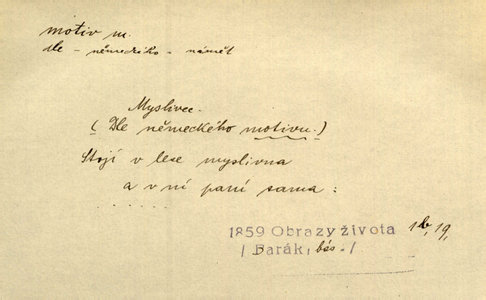 motiv m.
dle - německého - námět
Myslivec.
(Dle německého motivu.)
Stojí v lese myslivna
a v ní paní sama:
. . . . . .
1859 Obrazy života 1b, 19,
/ Barák, bás. /